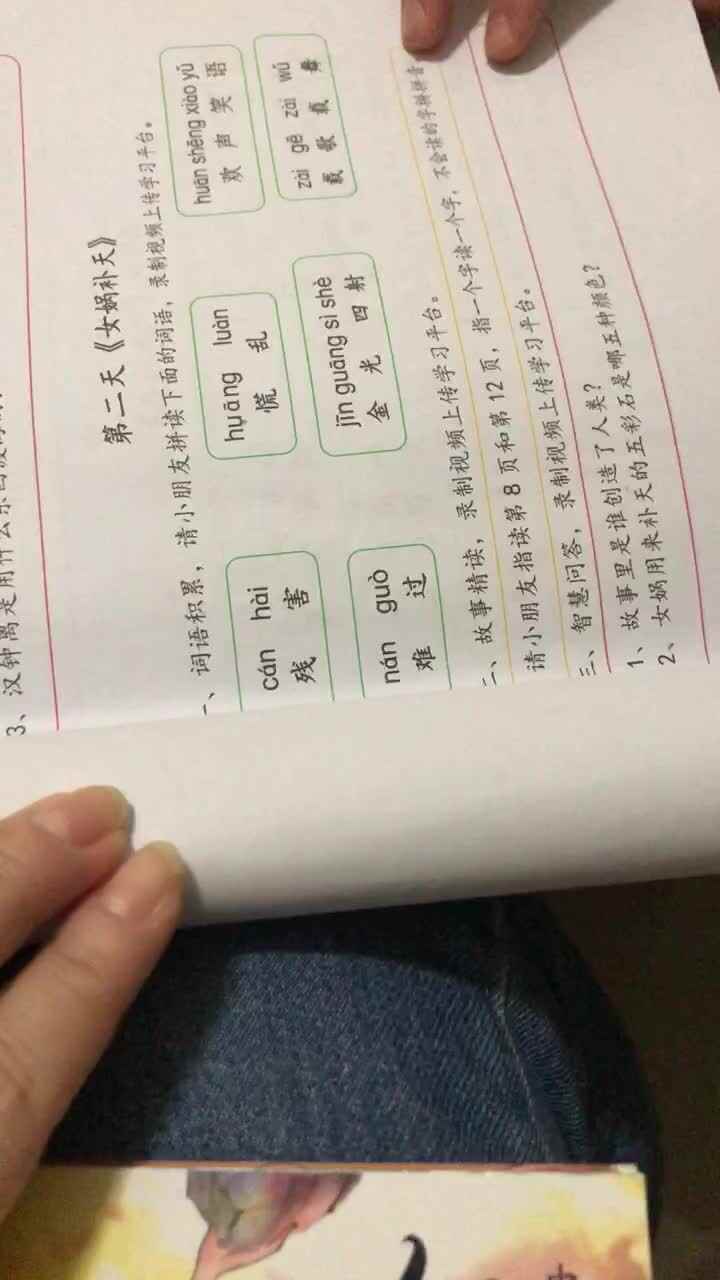 3、汉钟离是用什么
第二天《女娲补天》
一、词语积累，请小朋友拼读下面的词语，录制视频上传学习平台。
cán hài
残 害
huāng luàn
慌 乱
huān shēng xiào yǔ
欢 声 笑 语
nán guò
难 过
jīn guāng sì shè
金 光 四 射
zài gē zài wǔ
载 歌 载 舞
二、故事精读，录制视频上传学习平台。
请小朋友指读第 8 页和第 12 页，指一个字读一个字，不会读的字拼拼音
三、智慧问答，录制视频上传学习平台。
1、故事里是谁创造了人类？
2、女娲用来补天的五彩石是哪五种颜色？